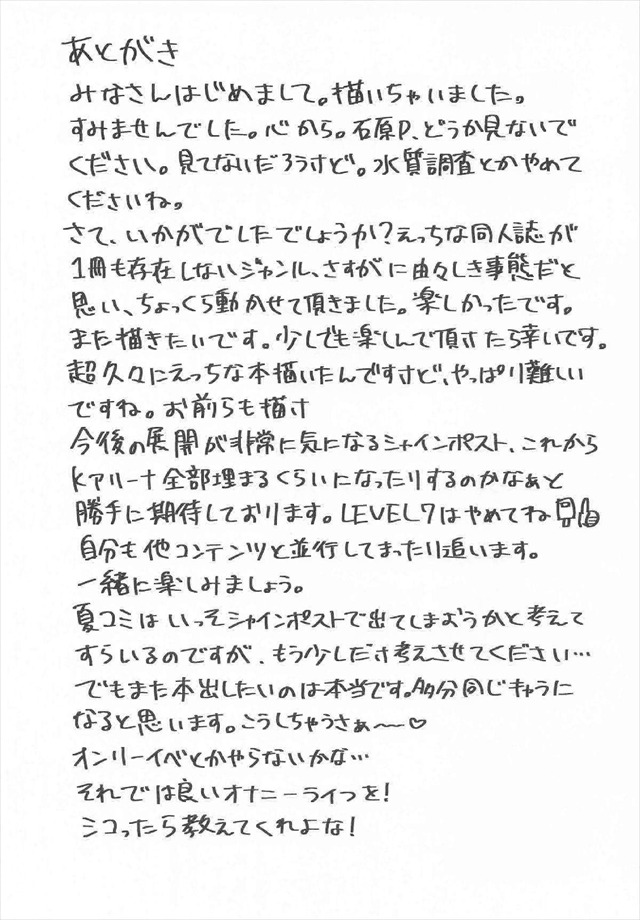 あとがき
みなさんはじめまして。描いちゃいました。
すみませんでした。心から。石原P、どうか見ないで
ください。見てないだろうけど。水質調査とかやめて
くださいね。
さて、いかがでしたでしょうか?えっちな同人誌が
1冊も存在しないジャンル、さすがに由々しき事態だと
思い、ちょっくら動かせて頂きました。楽しかったです。
また描きたいです。少しでも楽しんで頂けたら幸いです。
超久々にえっちな本描いたんですけど、やっぱり難しい
ですね。お前らも描け
今後の展開が非常に気になるシャインポスト、これから
Kアリーナ全部埋まるくらいになったりするのかなぁと
勝手に期待しております。LEVEL7はやめてね
自分も他コンテンツと並行してまったり追います。
一緒に楽しみましょう。
夏コミはいっそシャインポストで出てしまおうかと考えて
すらいるのですが、もう少しだけ考えさせてください…
でもまた本出したいのは本当です。多分同じキャラに
なると思います。こうしちゃうさぁ〜♡
オンリーイベとかやらないかな…
それでは良いオナニーライフを!
シコったら教えてくれよな!